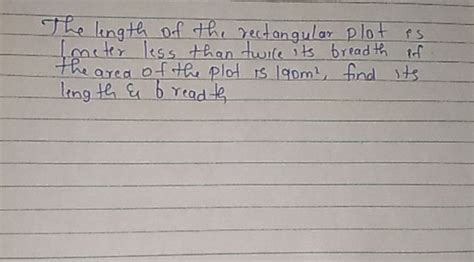 The length of the rectangular plot is
1 meter less than twice its breadth if
the area of the plot is 190m², find its
length & breadth